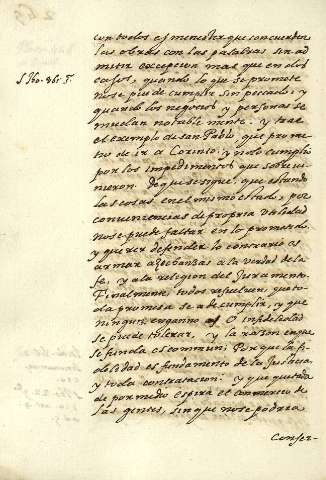 con todo es menester que concuerden
las obras con las palabras sin ad
mitir excepcion mas que en dos
casos, quando lo que se promete
no se puede cumplir sin peccado, y
quando los negocios y personas se
mudan notable mente: y trae
el exemplo de san Pablo, que prome
tio de ir a Corinto, y no lo cumplio
por los impedimentos que sobrevi
nieron. De que se sigue, que estando
las cosas en el mismo estado, por
conveniencias de propria utilidad
no se puede faltar en lo prometido
y querer defender lo contrario es
armar asechanzas a la verdad de la
fe, y a la religion del Juramento.
Finalmente, todos resuelven que to
da promesa se a de cumplir, y que
ningun enganno o infidelidad
se puede tolerar, y la razon en que
se funda es commun: Porque la fi
delidad es fundamento de la Justicia,
y toda contratacion: y que queda
de por medio espira el commercio de
las gentes, sin que no se podria
Conser-